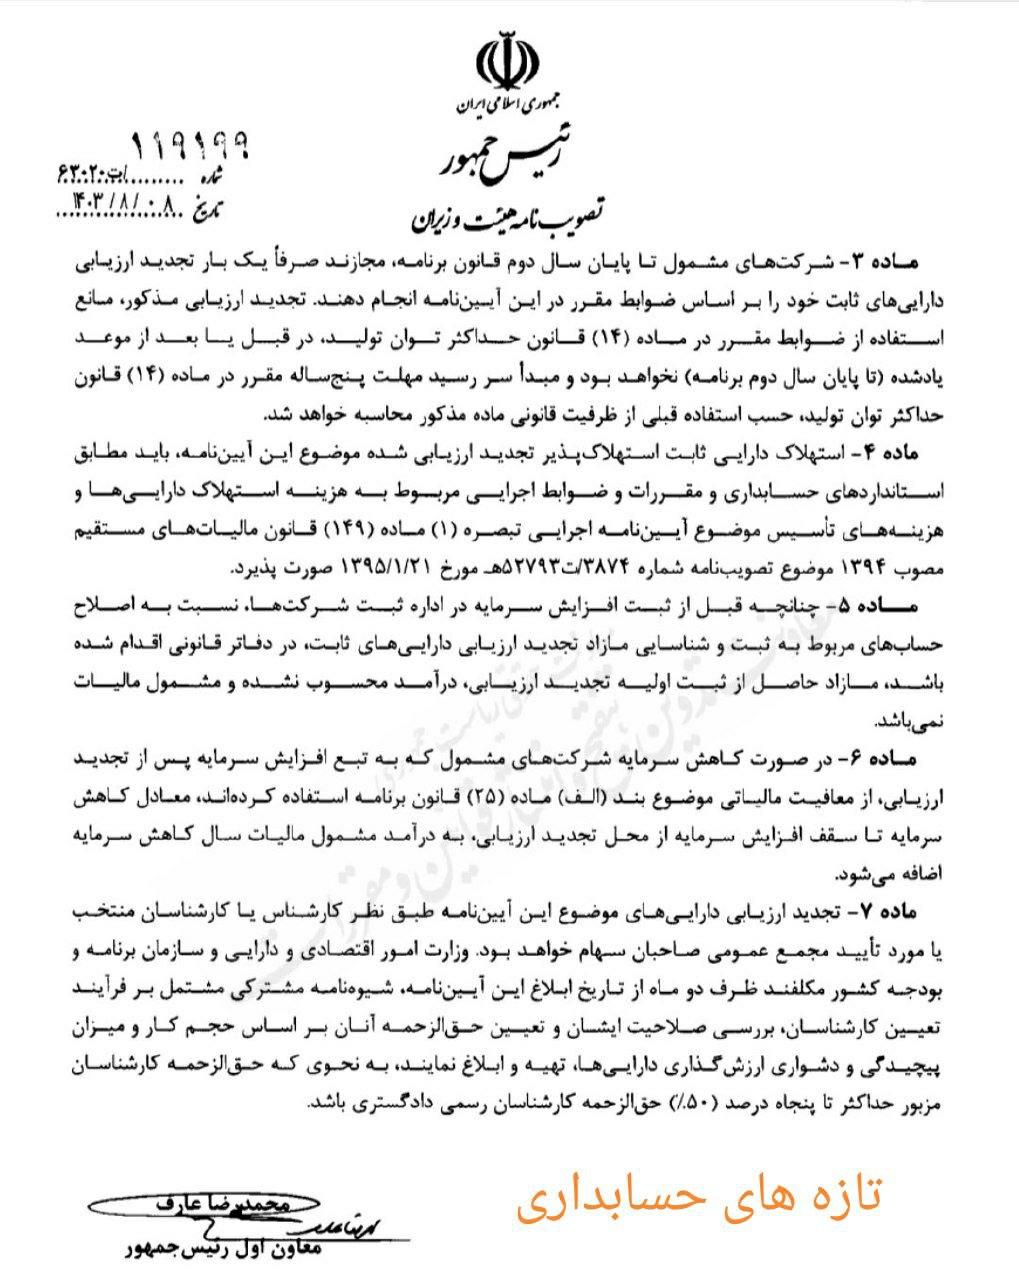 جمهوری اسلامی ایران
رئیس جمهور
تصویب نامه هیئت وزیران
۱۱۹۱۹۹
شماره ......../ت۶۳۰۲۰
تاریخ ۱۴۰۳/۸/۰۸
ماده ۳- شرکت‌های مشمول تا پایان سال دوم قانون برنامه، مجازند صرفاً یک بار تجدید ارزیابی
دارایی‌های ثابت خود را بر اساس ضوابط مقرر در این آیین‌نامه انجام دهند. تجدید ارزیابی مذکور، مانع
استفاده از ضوابط مقرر در ماده (۱۴) قانون حداکثر توان تولید، در قبل یا بعد از موعد
یادشده (تا پایان سال دوم برنامه) نخواهد بود و مبدأ سر رسید مهلت پنج‌ساله مقرر در ماده (۱۴) قانون
حداکثر توان تولید، حسب استفاده قبلی از ظرفیت قانونی ماده مذکور محاسبه خواهد شد.
ماده ۴- استهلاک دارایی ثابت استهلاک‌پذیر تجدید ارزیابی شده موضوع این آیین‌نامه، باید مطابق
استانداردهای حسابداری و مقررات و ضوابط اجرایی مربوط به هزینه استهلاک دارایی‌ها و
هزینه‌های تأسیس موضوع آیین‌نامه اجرایی تبصره (۱) ماده (۱۴۹) قانون مالیات‌های مستقیم
مصوب ۱۳۹۴ موضوع تصویب‌نامه شماره ۳۸۷۴/ت۵۲۷۹۳هـ مورخ ۱۳۹۵/۱/۲۱ صورت پذیرد.
ماده ۵- چنانچه قبل از ثبت افزایش سرمایه در اداره ثبت شرکت‌ها، نسبت به اصلاح
حساب‌های مربوط به ثبت و شناسایی مازاد تجدید ارزیابی دارایی‌های ثابت، در دفاتر قانونی اقدام شده
باشد، مازاد حاصل از ثبت اولیه تجدید ارزیابی، درآمد محسوب نشده و مشمول مالیات
نمی‌باشد.
ماده ۶- در صورت کاهش سرمایه شرکت‌های مشمول که به تبع افزایش سرمایه پس از تجدید
ارزیابی، از معافیت مالیاتی موضوع بند (الف) ماده (۲۵) قانون برنامه استفاده کرده‌اند، معادل کاهش
سرمایه تا سقف افزایش سرمایه از محل تجدید ارزیابی، به درآمد مشمول مالیات سال کاهش سرمایه
اضافه می‌شود.
ماده ۷- تجدید ارزیابی دارایی‌های موضوع این آیین‌نامه طبق نظر کارشناس یا کارشناسان منتخب
یا مورد تأیید مجمع عمومی صاحبان سهام خواهد بود. وزارت امور اقتصادی و دارایی و سازمان برنامه و
بودجه کشور مکلفند ظرف دو ماه از تاریخ ابلاغ این آیین‌نامه، شیوه‌نامه مشترکی مشتمل بر فرآیند
تعیین کارشناسان، بررسی صلاحیت ایشان و تعیین حق‌الزحمه آنان بر اساس حجم کار و میزان
پیچیدگی و دشواری ارزش‌گذاری دارایی‌ها، تهیه و ابلاغ نمایند، به نحوی که حق‌الزحمه کارشناسان
مزبور حداکثر تا پنجاه درصد (۵۰٪) حق‌الزحمه کارشناسان رسمی دادگستری باشد.
تازه های حسابداری
محمدرضا عارف
معاون اول رئیس‌جمهور